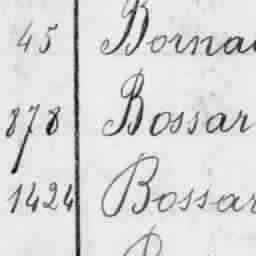 45 Borna
878 Bossar
1424 Bossar